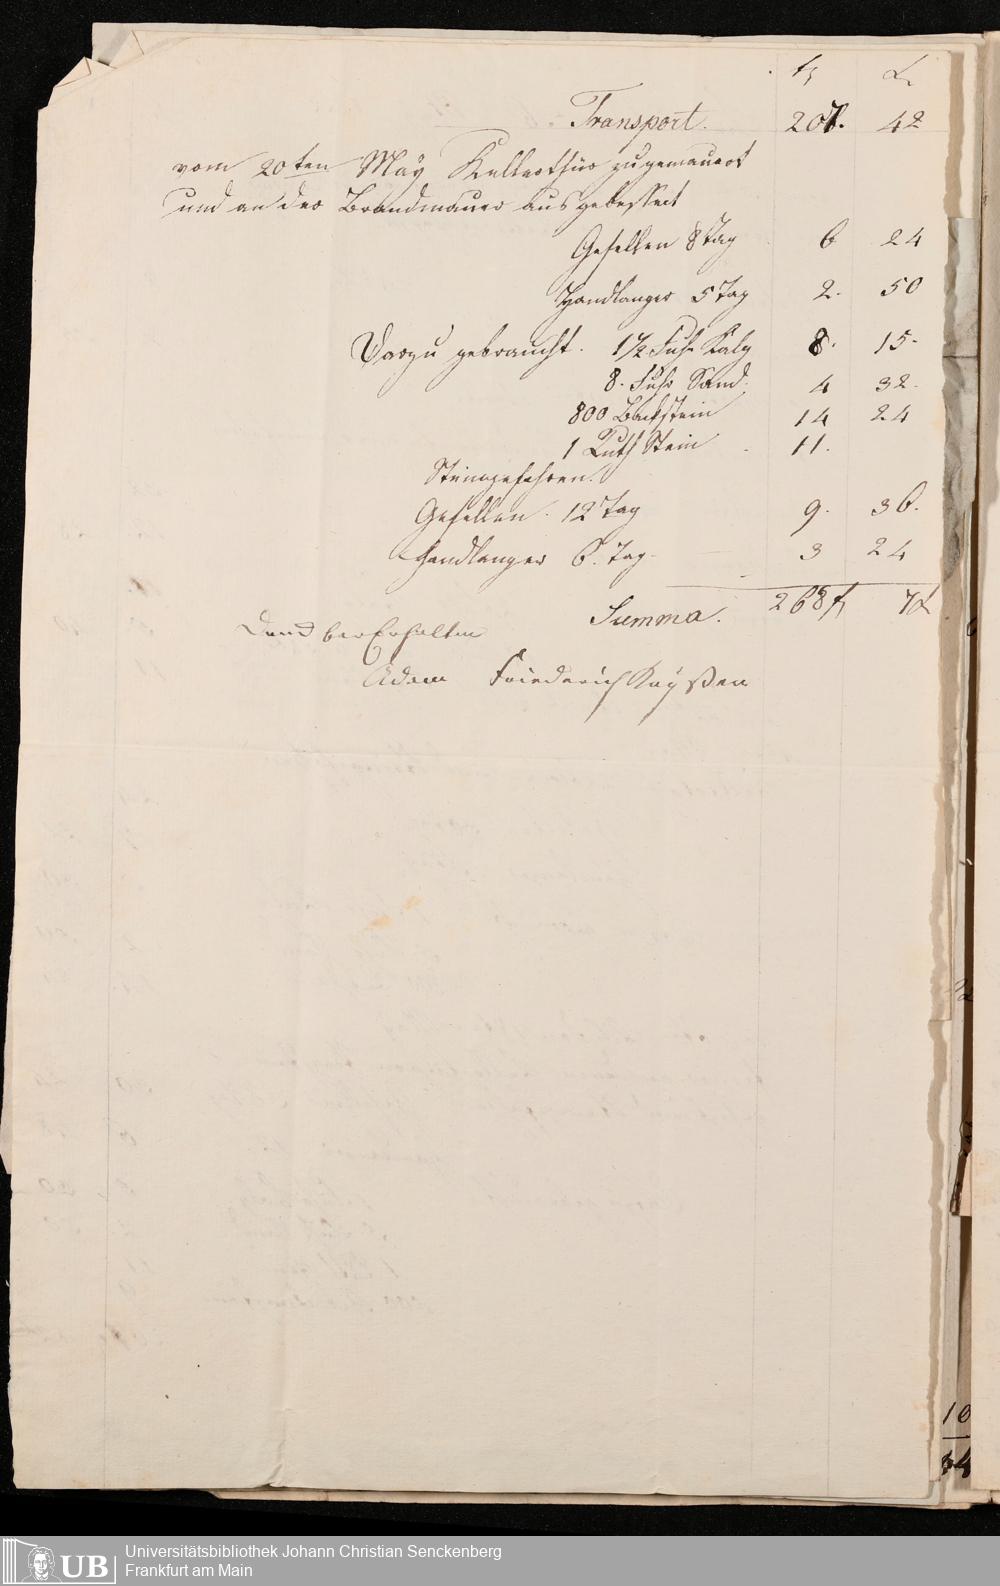 f xr
Transport. 207. 42
vom 20ten Maÿ Kellerthür zugemauert
und an der Brandmauer ausgebessert
Gesellen 8 Tag 6 24
Handlanger 5 Tag 2. 50
Darzu gebraucht. 1 1/2 Fuhr Kalg 8. 15.
8. Fuhr Sand. 4 32.
800 Backstein 14 24
1 Ruth Stein 11.
Steingefahren.
Gesellen. 12 Tag 9. 36.
Handlanger 6. Tag. 3 24
Summa. 268 f 7 x
Dand bar Erhalten
Adam Friederich Kayßer
10
44
Universitätsbibliothek Johann Christian Senckenberg
Frankfurt am Main
UB